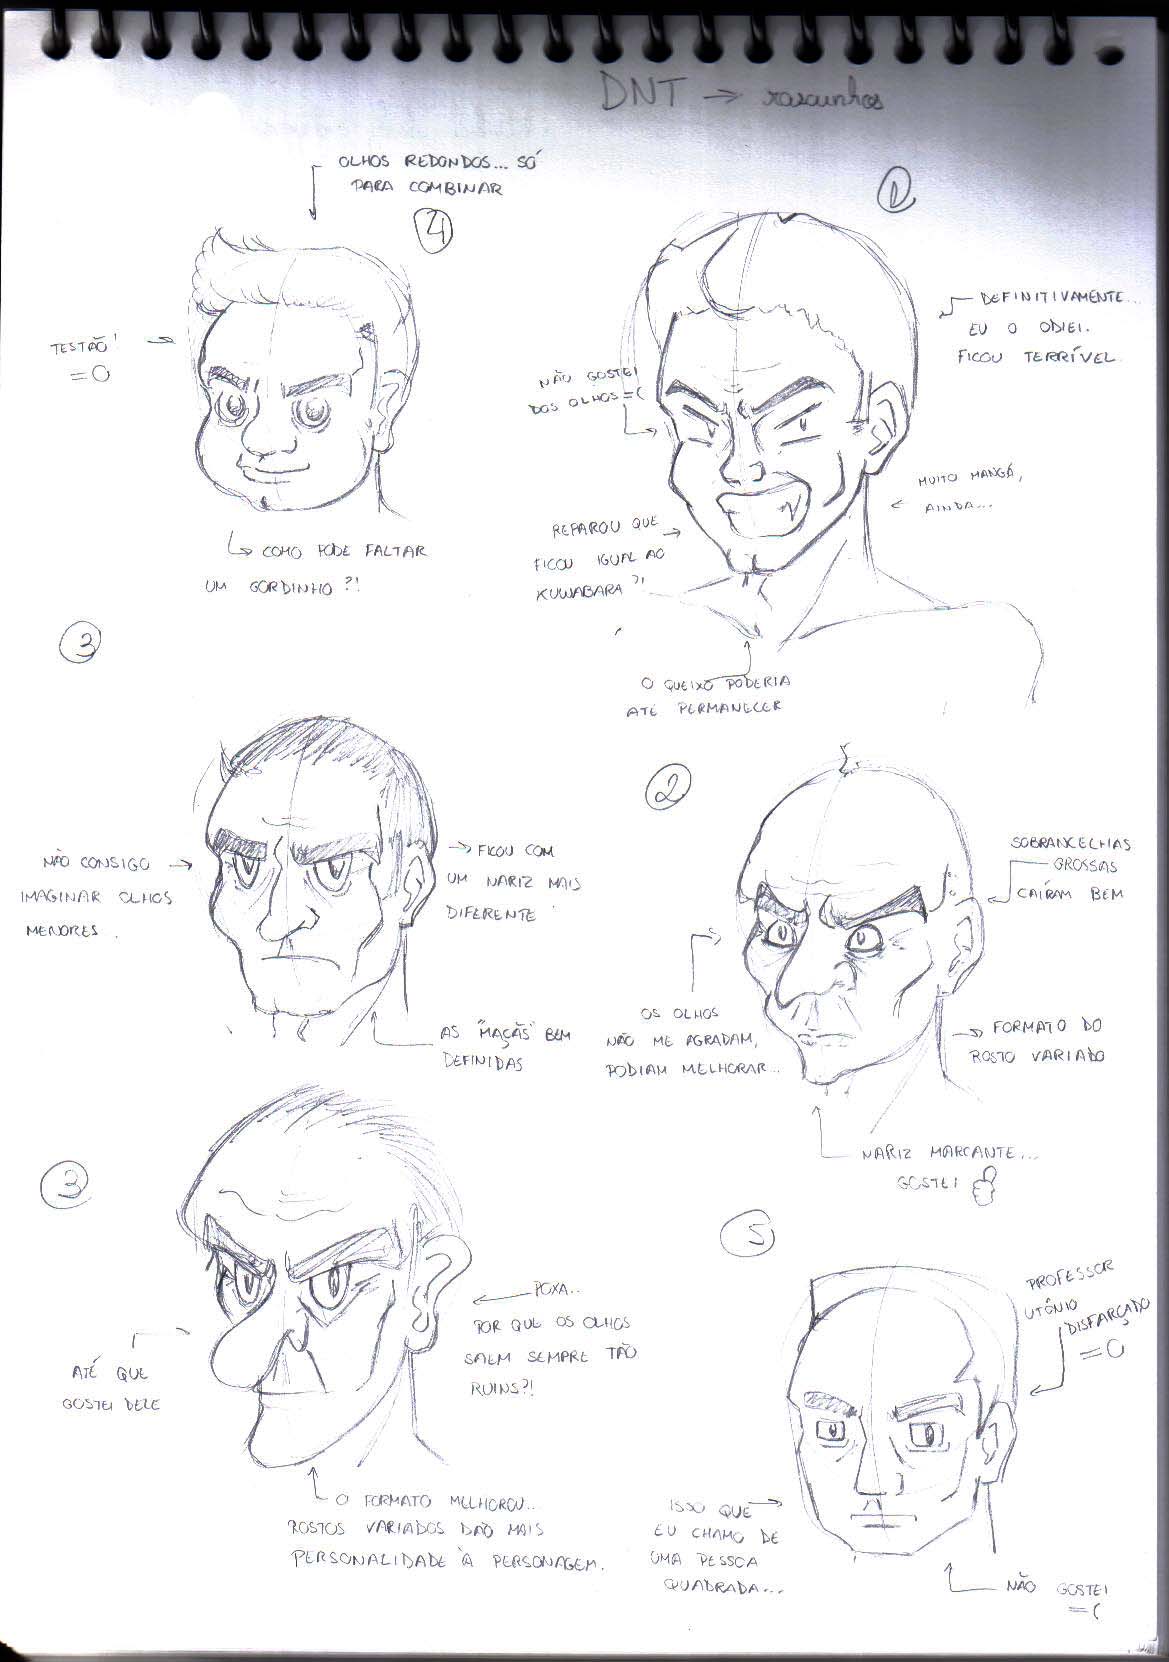 DNT → rascunhos
OLHOS REDONDOS... SÓ
PARA COMBINAR
4
TESTÃO!
=O
↳ COMO PODE FALTAR
UM GORDINHO?!
1
DEFINITIVAMENTE...
EU O ODIEI.
FICOU TERRÍVEL.
NÃO GOSTEI
DOS OLHOS =(
MUITO MANGÁ,
AINDA...
REPAROU QUE
FICOU IGUAL AO
KUWABARA?!
O QUEIXO PODERIA
ATÉ PERMANECER
3
NÃO CONSIGO
IMAGINAR OLHOS
MENORES.
FICOU COM
UM NARIZ MAIS
DIFERENTE
AS "MAÇÃS" BEM
DEFINIDAS
2
SOBRANCELHAS
GROSSAS
CAÍRAM BEM
OS OLHOS
NÃO ME AGRADAM,
PODIAM MELHORAR...
FORMATO DO
ROSTO VARIADO
NARIZ MARCANTE...
GOSTEI
3
POXA..
POR QUE OS OLHOS
SAEM SEMPRE TÃO
RUINS?!
ATÉ QUE
GOSTEI DELE
O FORMATO MELHOROU...
ROSTOS VARIADOS DÃO MAIS
PERSONALIDADE À PERSONAGEM.
5
PROFESSOR
UTÔNIO
DISFARÇADO
=O
ISSO QUE
EU CHAMO DE
UMA PESSOA
QUADRADA...
NÃO GOSTEI
=(